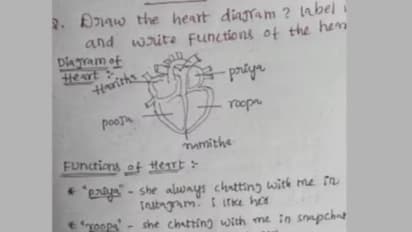 2. Draw the heart diagram? label
and write functions of the
Diagram of
Heart :-
Haritha
priya
pooja
roopa
namitha
Functions of Heart :-
* "priya" - she always chatting with me in
instagram. i like her
* "roopa" - she chatting with me in snapchat